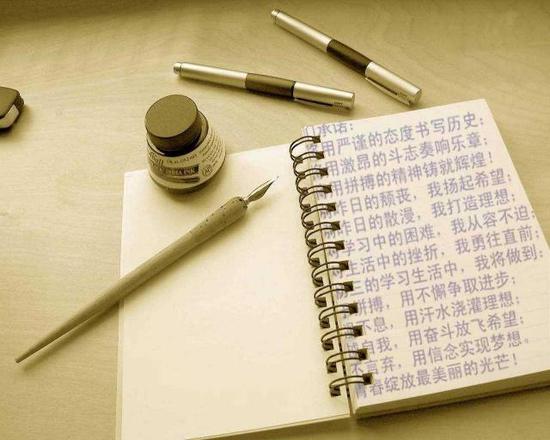 承诺:
用严谨的态度书写历史;
用激昂的斗志奏响乐章;
用拼搏的精神铸就辉煌!
昨日的颓丧,我扬起希望;
昨日的散漫,我打造理想;
学习中的困难,我从容不迫
生活中的挫折,我勇往直前;
的学习生活中,我将做到:
拼搏,用不懈争取进步;
不息,用汗水浇灌理想;
自我,用奋斗放飞希望;
不言弃,用信念实现梦想。
青春绽放最美丽的光芒!
INDIA INK